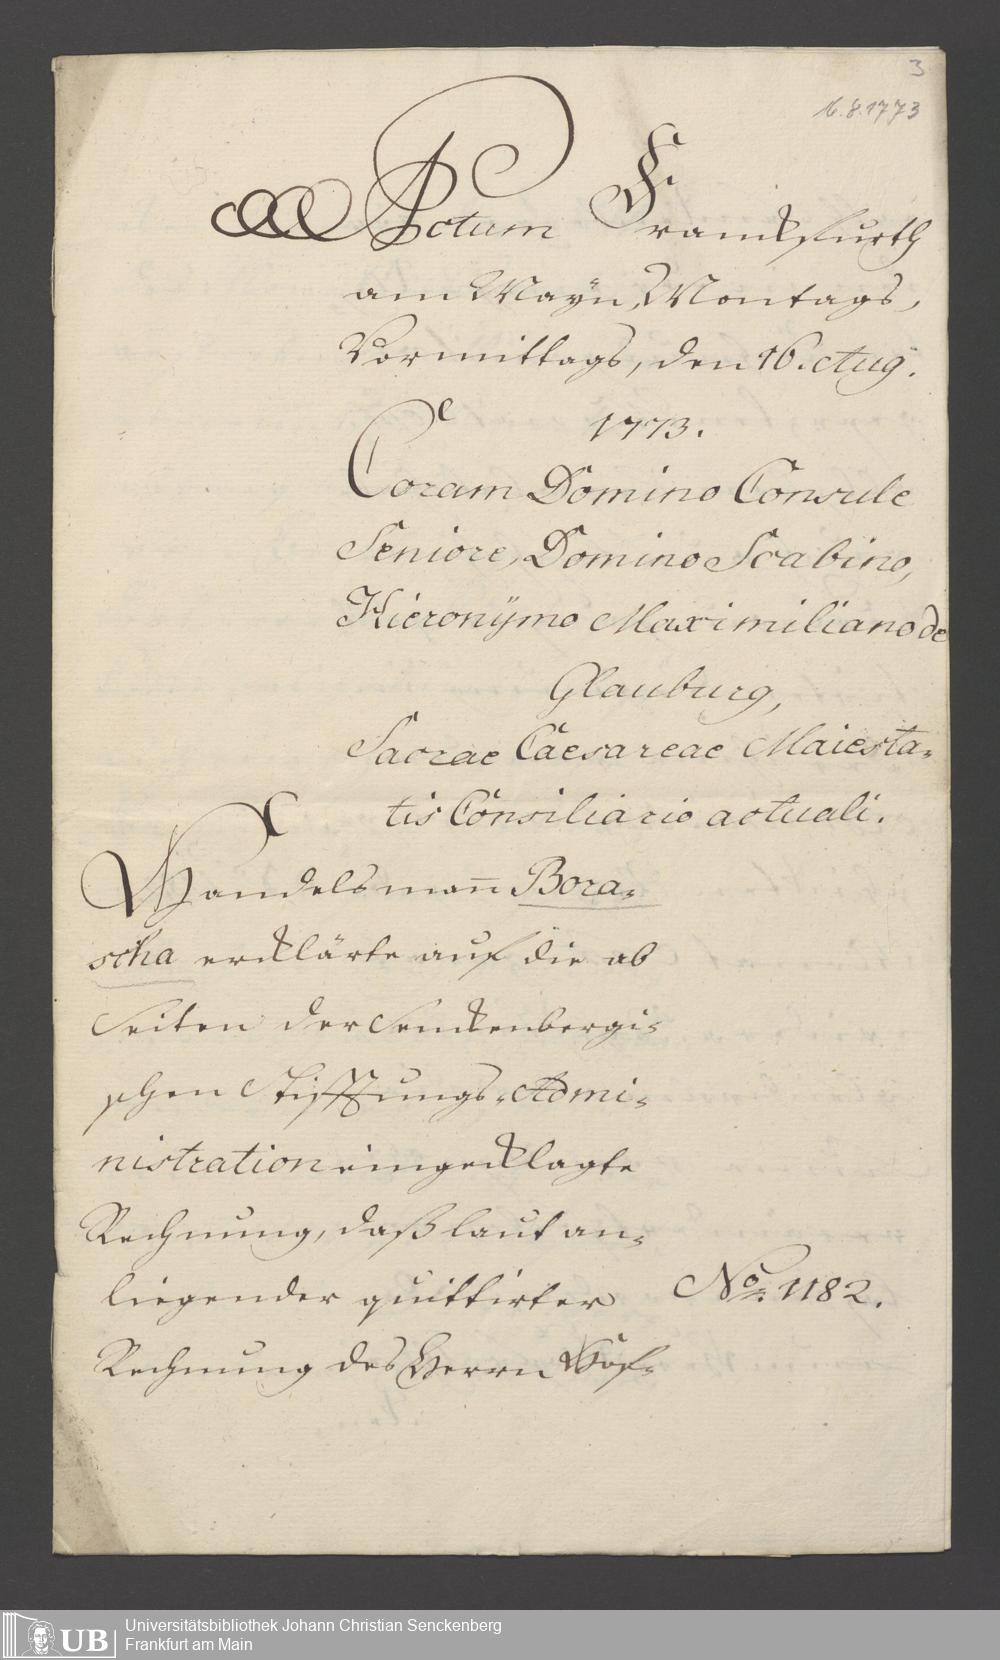 3
16.8.1773
Actum Franckfurth
am Mayn, Montags,
Vormittags, den 16. Aug.
1773.
Coram Domino Consule
Seniore, Domino Scabino,
Hieronÿmo Maximiliano de
Glauburg,
Sacrae Caesareae Maiesta-
tis Consiliario actuali.
Handelsmann Bora-
scha ercklärte auf die ab
Seiten der Senckenbergi-
schen Stifftungs-Admi-
nistration eingecklagte
Rechnung, daß laut an-
liegender quittirter
No. 1182.
Rechnung des Herrn Hof-
Universitätsbibliothek Johann Christian Senckenberg
Frankfurt am Main
UB